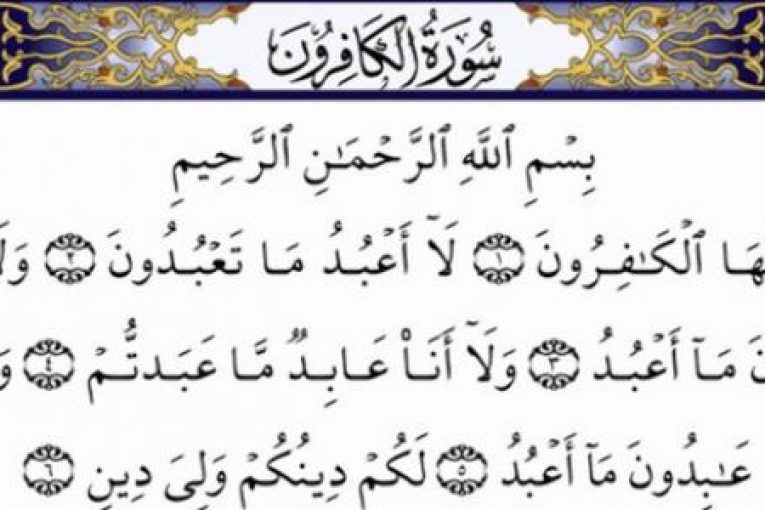 سُورَةُ الكَافِرُونَ
بِسْمِ ٱللَّهِ ٱلرَّحْمَـٰنِ ٱلرَّحِيمِ
ـهَا ٱلْكَـٰفِرُونَ ١ لَآ أَعْبُدُ مَا تَعْبُدُونَ ٢ وَلَآ
نَ مَآ أَعْبُدُ ٣ وَلَآ أَنَا۠ عَابِدٌ مَّا عَبَدتُّمْ ٤ وَ
عَـٰبِدُونَ مَآ أَعْبُدُ ٥ لَكُمْ دِينُكُمْ وَلِىَ دِينِ ٦